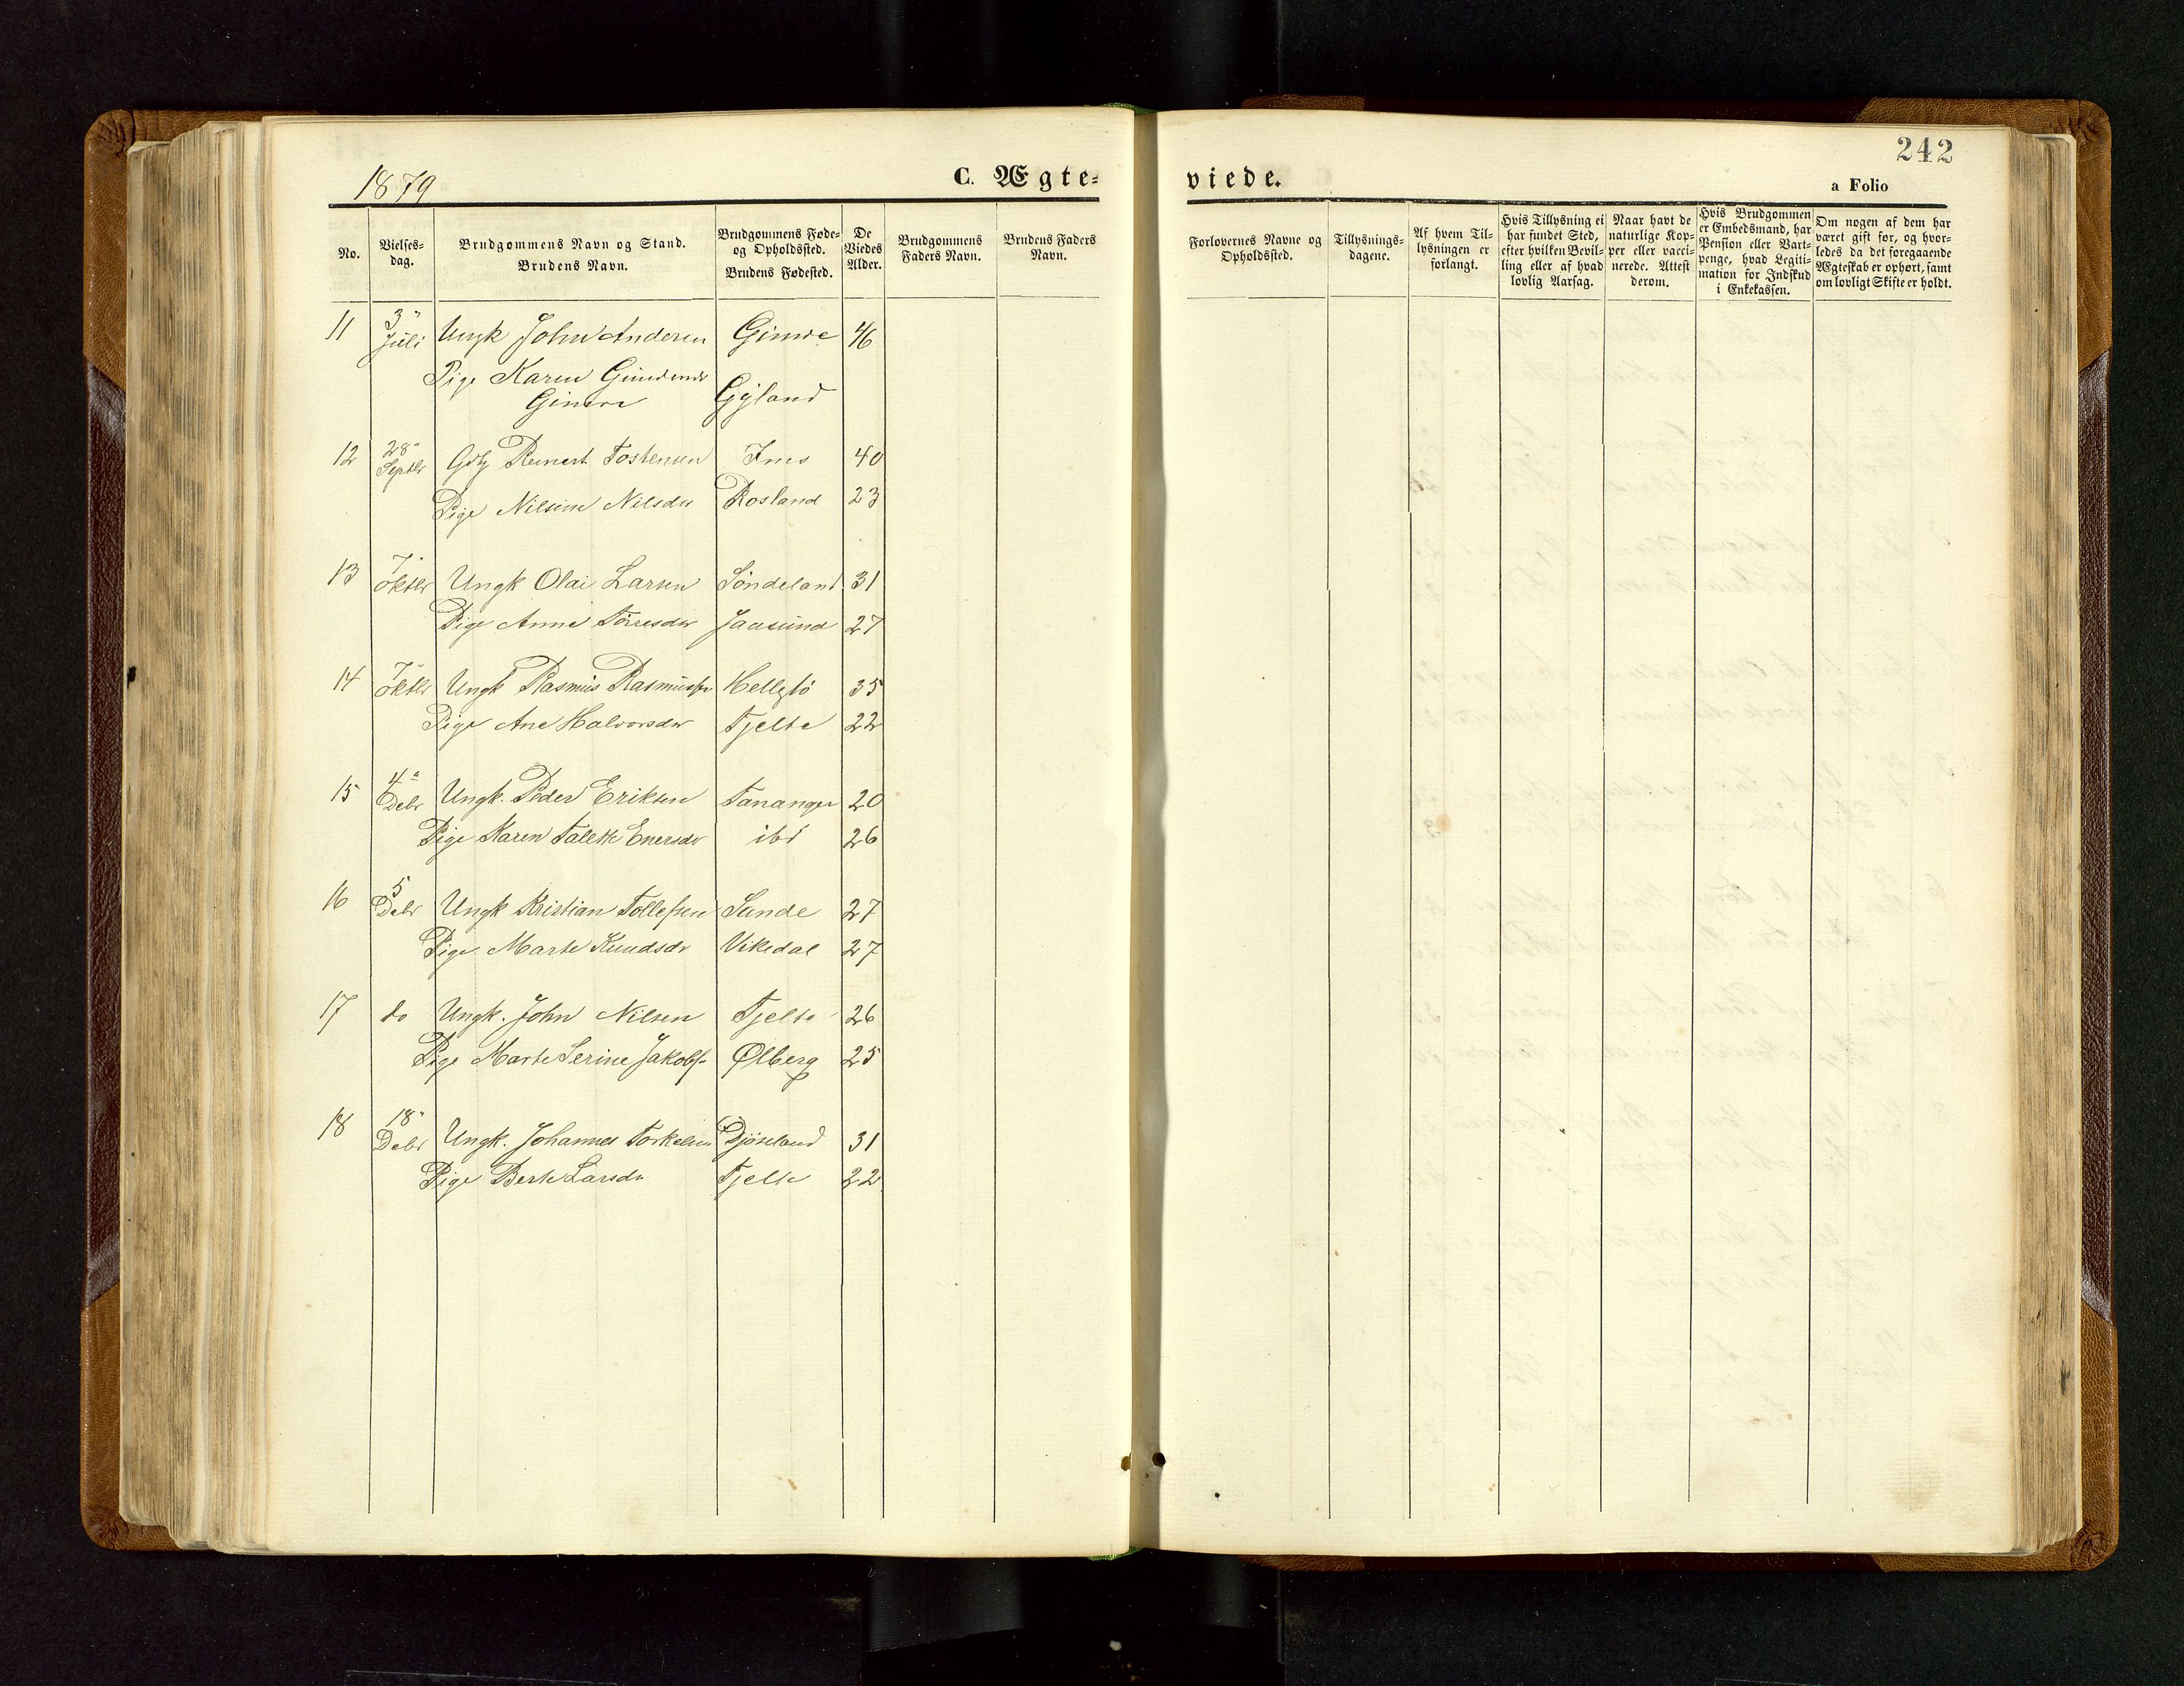 242
1879
C. Ægte-
viede.
a Folio
No.
Vielses-
dag.
Brudgommens Navn og Stand.
Brudens Navn.
Brudgommens Føde-
og Opholdssted.
Brudens Fødested.
De
Viedes
Alder.
Brudgommens
Faders Navn.
Brudens Faders
Navn.
Forlovernes Navne og
Opholdssted.
Tillysnings-
dagene.
Af hvem Til-
lysningen er
forlangt.
Hvis Tillysning ei
har fundet Sted,
efter hvilken Bevil-
ling eller af hvad
lovlig Aarsag.
Naar havt de
naturlige Kop-
per eller vacci-
nerede. Attest
derom.
Hvis Brudgommen
er Embedsmand, har
Pension eller Vart-
penge, hvad Legiti-
mation for Indskud
i Enkekassen.
Om nogen af dem har
været gift før, og hvor-
ledes da det foregaaende
Ægteskab er ophørt, samt
om lovligt Skifte er holdt.
11 3" Juli Ungk John Andersen Gimre 46
Pige Karen
Gimre Gyland
12 28" Septbr Reinert Tostensen Ims 40
Pige Nilsine Nilsdr Rosland 23
13 7" Oktbr Ungk Olai Larsen Søndeland 31
Pige Anne Tørresdr Jaasund 27
14 7" Oktbr Ungk Rasmus Rasmussen Hellestø 35
Pige Ane Halvorsdr Tjelte 22
15 4" Debr Ungk. Peder Eriksen Tananger 20
Pige Karen Talette Enersdr ibd 26
16 5 Debr Ungk Kristian Tollefsen Sande 27
Pige Marte Knudsdr Vikedal 27
17 do Ungk. John Nilsen Tjelte 26
Pige Marte Serine Jakobs. Ølberg 25
18 18" Debr Ungk. Johannes Torkelsen Djøseland 31
Pige Berte Larsdr Tjelte 22